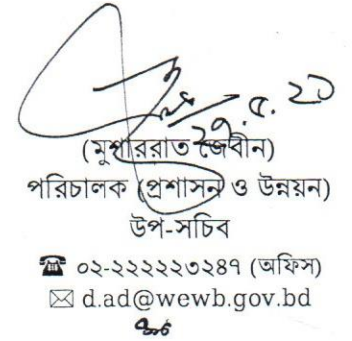 ২৯.৫.২৩
(মুশাররাত জেবীন)
পরিচালক (প্রশাসন ও উন্নয়ন)
উপ-সচিব
☎ ০২-২২২২২৩২৪৭ (অফিস)
✉ d.ad@wewb.gov.bd